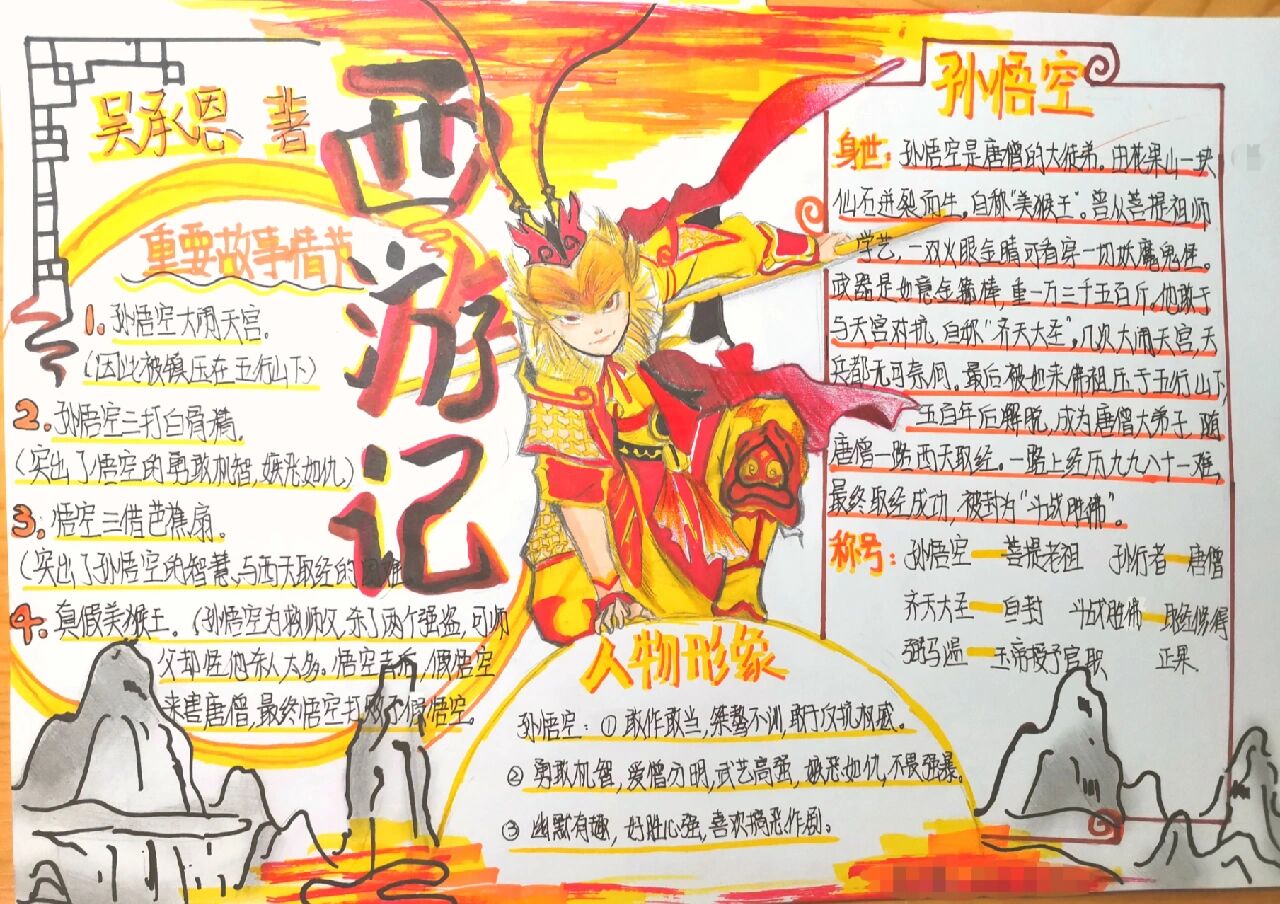 吴承恩 著
西游记
重要故事情节
1. 孙悟空大闹天宫.
(因此被镇压在五行山下)
2. 孙悟空三打白骨精.
(突出了悟空的勇敢机智,嫉恶如仇)
3. 悟空三借芭蕉扇.
(突出了孙悟空的智慧,与西天取经的困难
4. 真假美猴王. (孙悟空为救师父,杀了两个强盗,可师
父却怪他杀人太多.悟空走后,假悟空
来害唐僧,最终悟空打败了假悟空.
人物形象
孙悟空: ①敢作敢当,桀骜不训,敢于对抗权威.
② 勇敢机智,爱憎分明,武艺高强,嫉恶如仇,不畏强暴.
③ 幽默有趣,好胜心强,喜欢搞恶作剧.
孙悟空
身世: 孙悟空是唐僧的大徒弟.由花果山一块
仙石迸裂而生,自称"美猴王".曾从菩提祖师
学艺,一双火眼金睛可看穿一切妖魔鬼怪.
武器是如意金箍棒,重一万三千五百斤,他敢于
与天宫对抗,自称"齐天大圣",几次大闹天宫,天
兵都无可奈何.最后被如来佛祖压于五行山下,
五百年后解脱,成为唐僧大弟子,随
唐僧一路西天取经.一路上经历九九八十一难,
最终取经成功,被封为"斗战胜佛".
称号: 孙悟空—菩提老祖 孙行者—唐僧
齐天大圣—自封 斗战胜佛—取经修得
弼马温—玉帝授予官职 正果